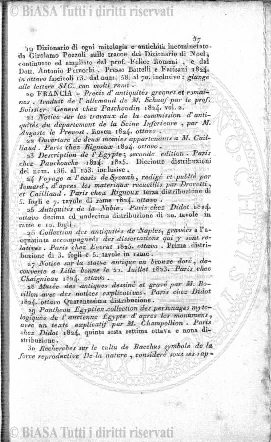 37
19 Dizionario di ogni mitologia e antichità incominciato
da Girolamo Pozzoli sulle tracce del Dizionario di Noel,
continuato ed ampliato dal prof. Felice Romani, e dal
Dott. Antonio Peracchi. Presso Batelli e Fanfani 1824.
in ottavo fascicoli 13. dal num. 58. al 70. inclusive: giunge
alle lettere SIC. con molti rami.
20 FRANCIA — Précis d'antiquités grecques et romai-
nes, traduit de l'allemand de M. Schaaf par le prof.
Boissier. Geneva chez Paschoudin 1824. vol. 2.
21 Notice sur les travaux de la commission d'anti-
quités du département de la Seine Inferieure, par M.
Auguste le Prevost. Roven 1824. ottavo.
22 Ouverture de deux momies appartenants a M. Cail-
liaud. Paris chez Rignoux 1824. ottavo.
23 Description de l'Égypte, seconde edition. Paris
chez Panckoucke 1824. 1825. Diecinove distribuzioni
del num. 136. al 163. inclusive.
24 Voyage a l'oasis de Syouah, redigé et publié par
Jomard, d'après les materiaux recueillis par Drovetti,
et Cailliaud. Paris chez Rignoux terza distribuzione di
5. fogli e 7. tavole di rame 1824. ottavo.
25 Antiquités de la Nubie. Paris chez Didot 1824.
ottavo decima ed undecima distribuzione di 20. tavole in
rame e 10. fogli.
26 Collection des antiquités de Naples, gravées a l'a-
quatinta accompagnées des dissertations qui y sont re-
latives. Paris chez Everat 1825. ottavo. Prima distri-
buzione di 3. fogli e 5. tavole in rame.
27 Notice sur la statue antique en bronze doré, de-
couverte a Lille bonne le 22. Juillet 1823. Paris chez
Chaignieau 1824. ottavo.
28 Musée des antiques dessiné et gravé par M. Bo-
villon avec des notices explicatives. Paris chez Didot
1824. ottavo Quarantesima distribuzione.
29 Pantheon Egyptien collection des personages mytho-
logiques de l'ancienne Egypte d'apres les monumens,
avec un texte explicatif par M. Champollion. Paris
chez Didot 1824. quinta sesta settima ottava e nona di-
stribuzione.
30 Recherches sur le culte de Bacchus symbole de la
force reproductive De la nature, considéré sous ses rap-
© BIASA Tutti i diritti riservati
© BIASA Tutti i diritti riservati